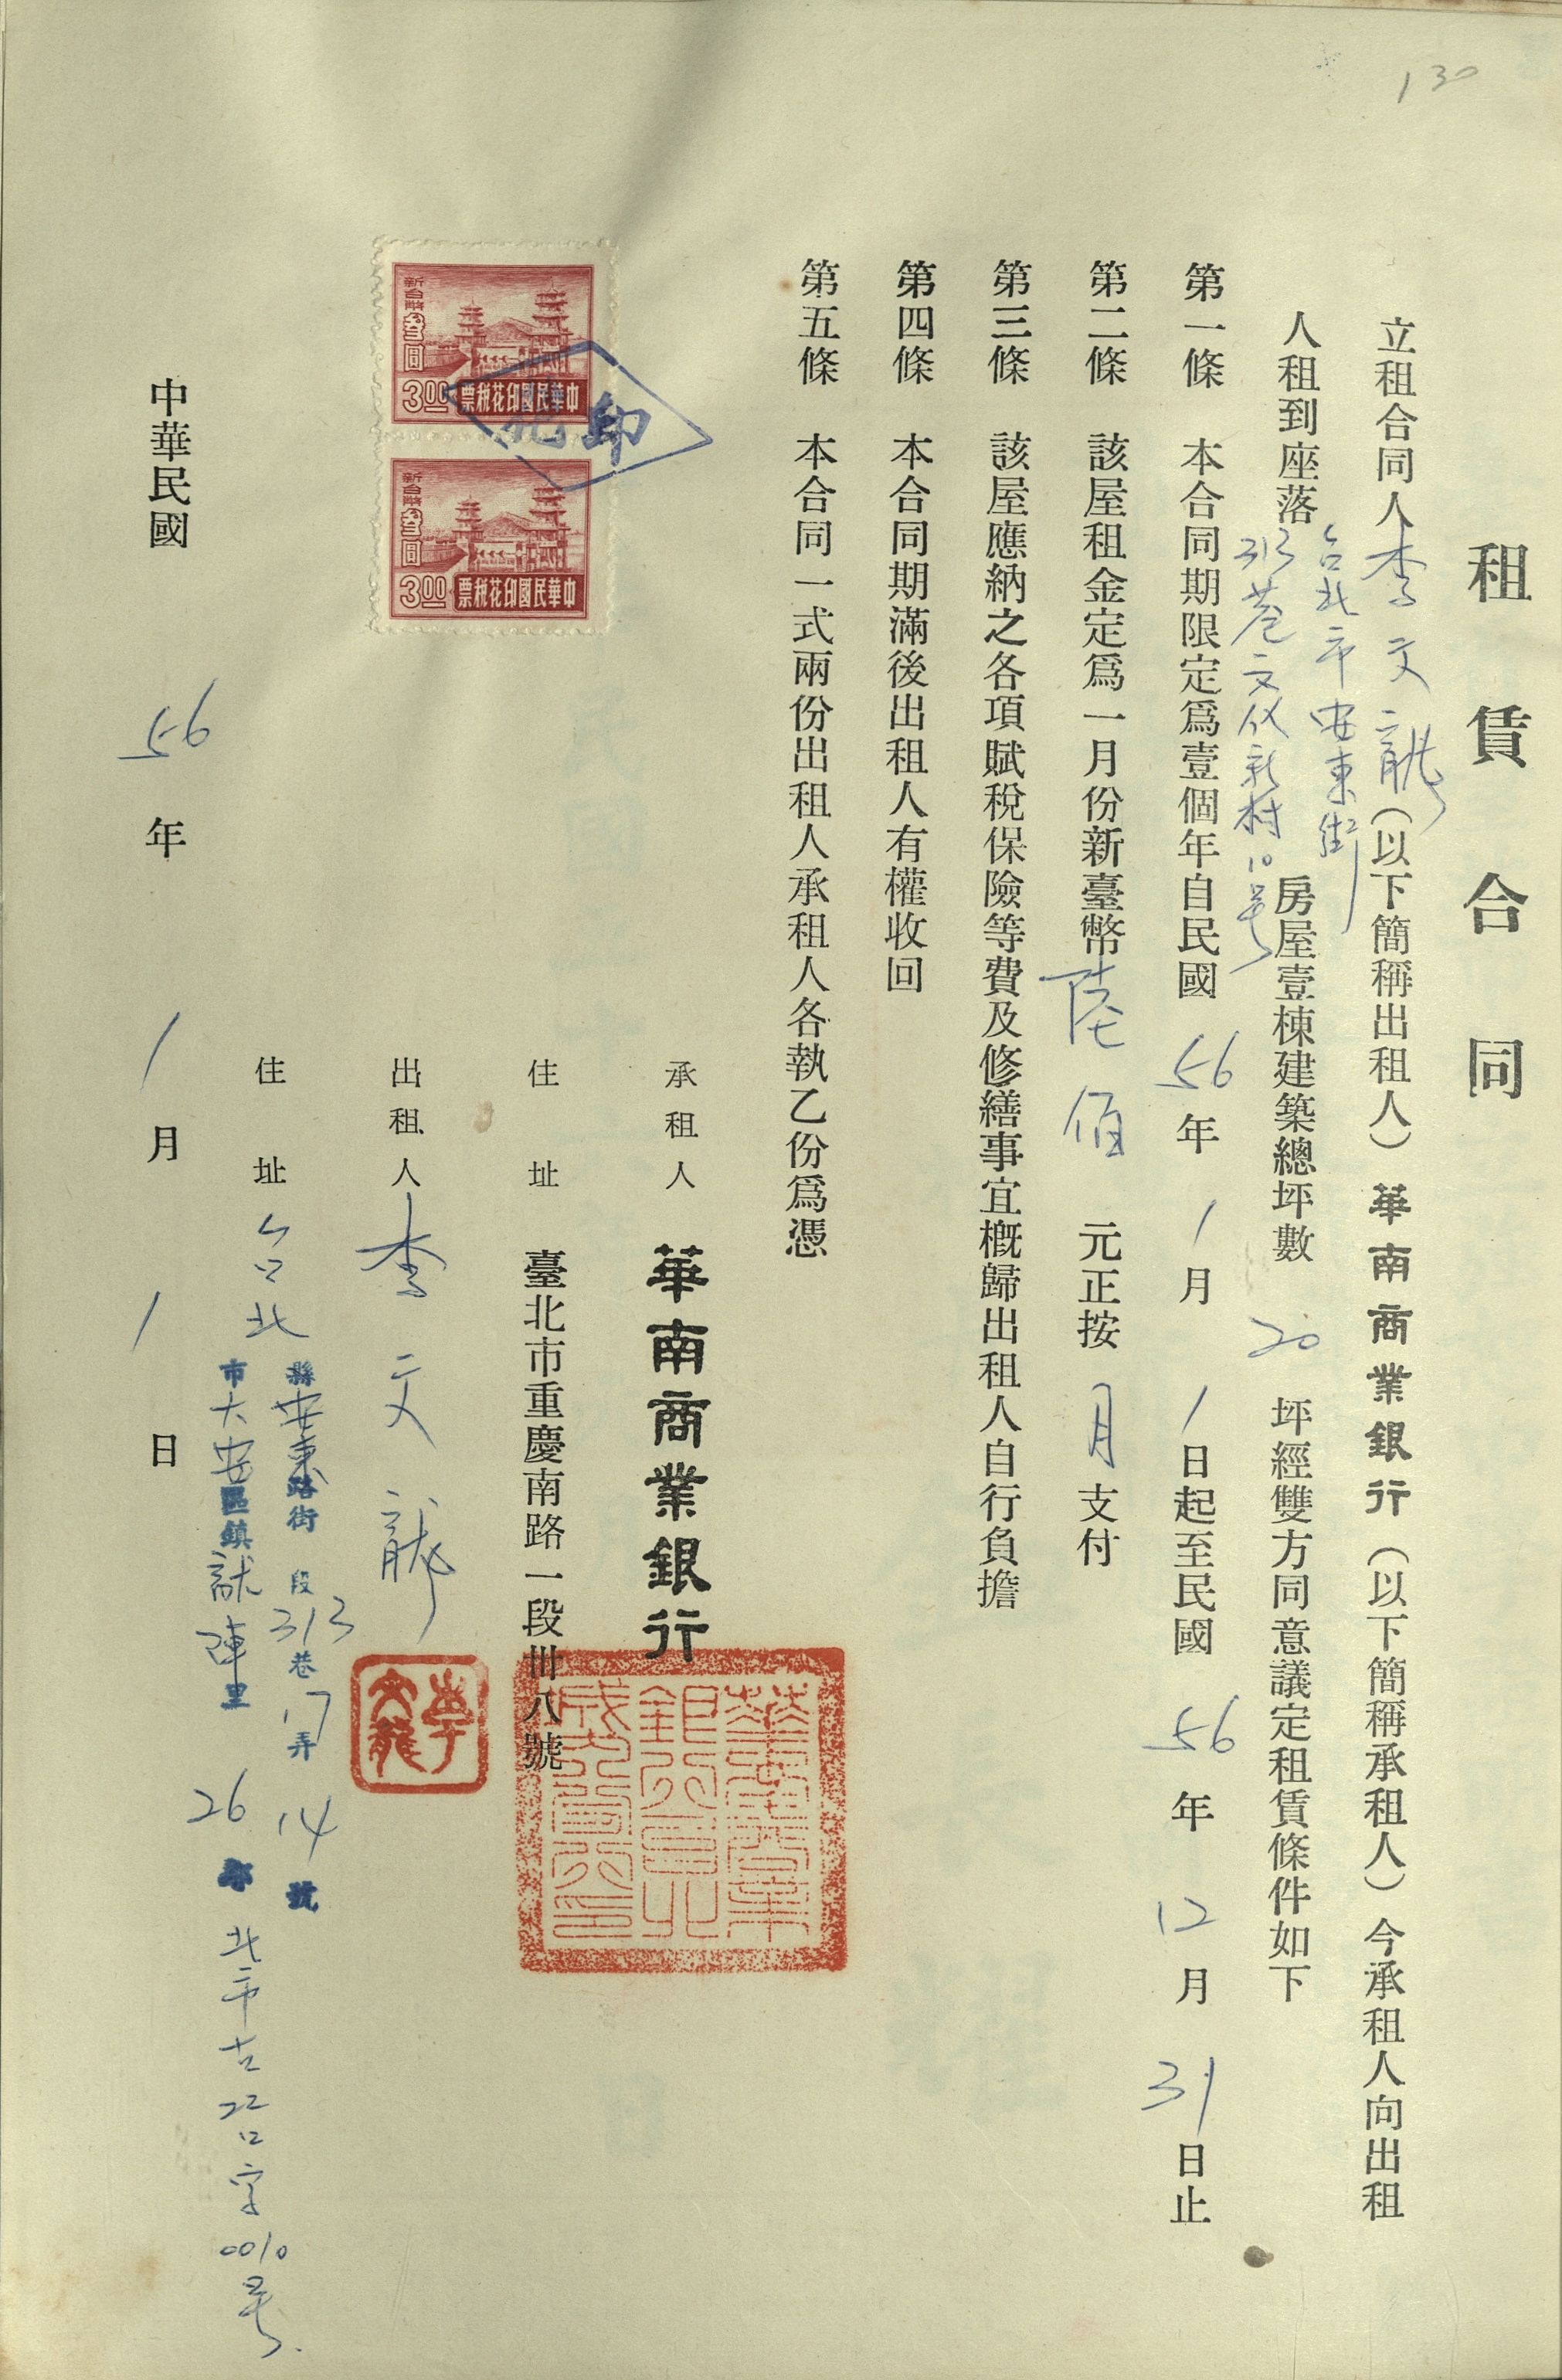 130
租賃合同
立租合同人李文龍(以下簡稱出租人)華南商業銀行(以下簡稱承租人)今承租人向出租
人租到座落台北市安東街313巷文儀新村10号房屋壹棟建築總坪數20坪經雙方同意議定租賃條件如下
第一條 本合同期限定為壹個年自民國56年1月1日起至民國56年12月31日止
第二條 該屋租金定為一月份新臺幣陸佰元正按月支付
第三條 該屋應納之各項賦稅保險等費及修繕事宜概歸出租人自行負擔
第四條 本合同期滿後出租人有權收回
第五條 本合同一式兩份出租人承租人各執乙份為憑
承租人 華南商業銀行
住址 臺北市重慶南路一段卅八號
華南商業銀行臺北
出租人 李文龍
李文龍
住址 台北
縣安東路街 段313巷17弄14號
市大安區鎮 里26鄰 北市古 字0010号
新台幣叁圓
3.00 中華民國印花稅票
印花
新台幣叁圓
3.00 中華民國印花稅票
中華民國56年1月1日